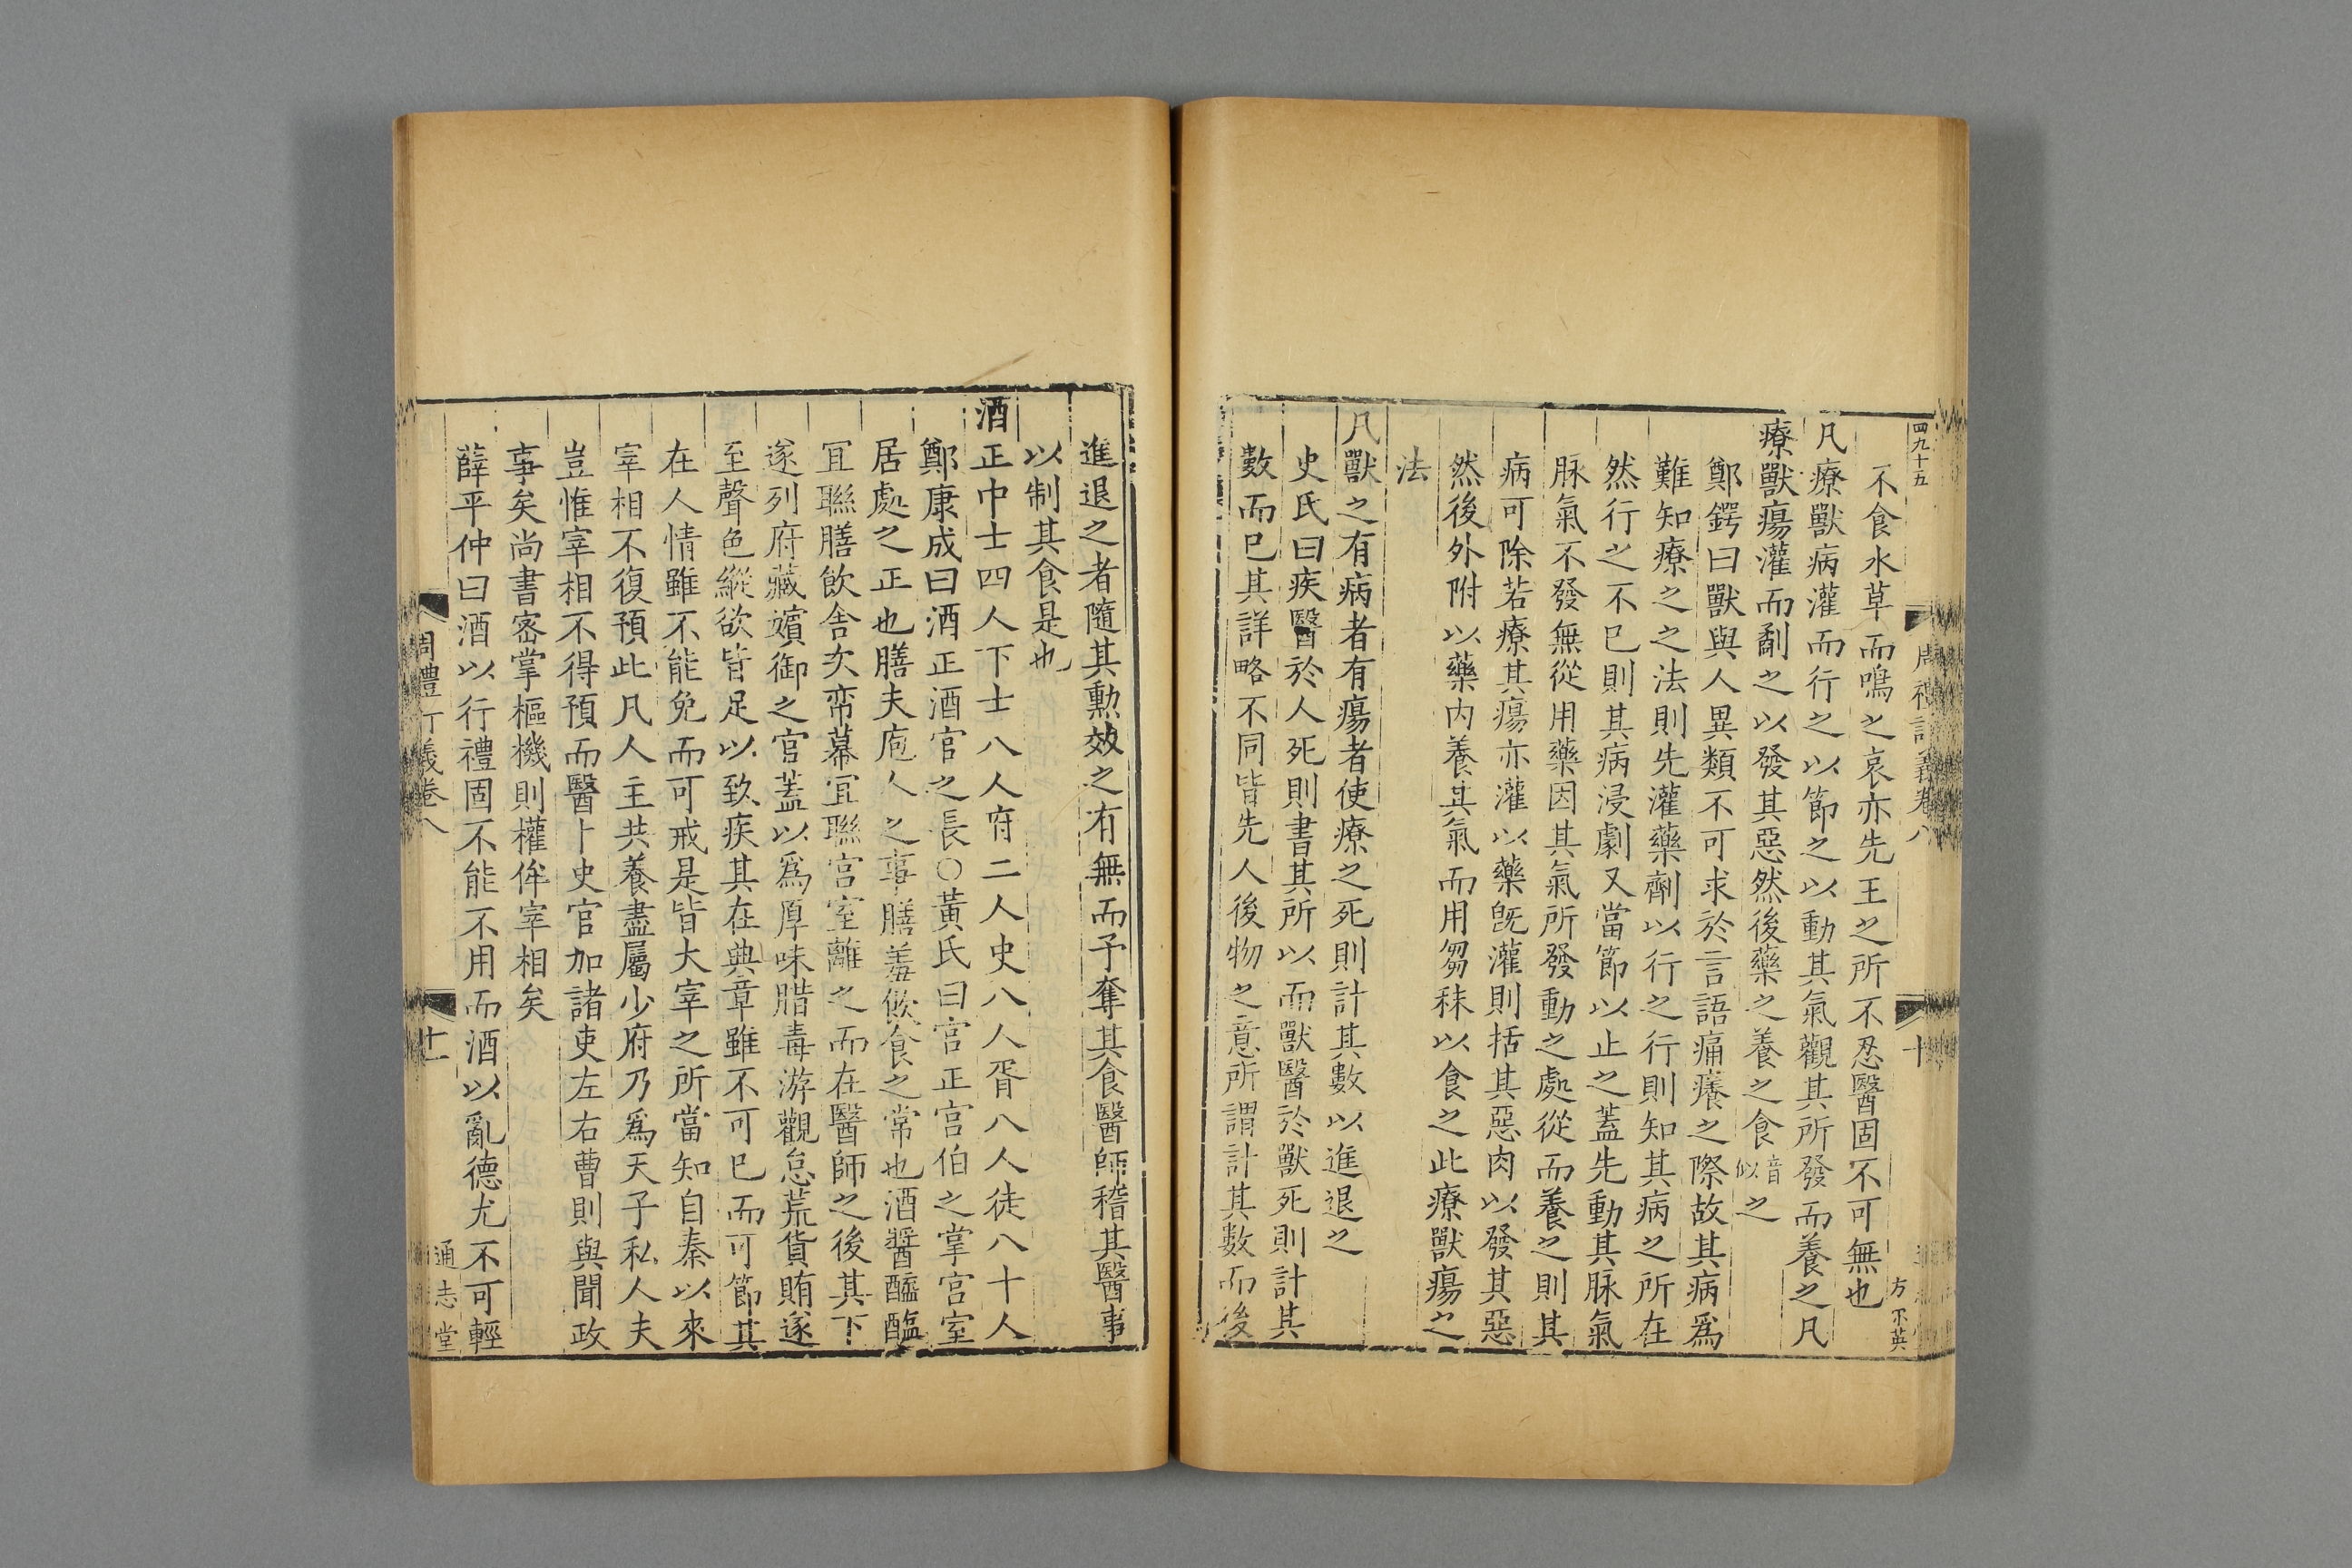 四九十五
周禮訂義卷八
十
不食水草而鳴之哀亦先王之所不忍醫固不可無也
方不英
凡療獸病灌而行之以節之以動其氣觀其所發而養之凡
療獸瘍灌而劀之以發其惡然後藥之養之食音似之
鄭鍔曰獸與人異類不可求於言語痛癢之際故其病爲
難知療之之法則先灌藥劑以行之行則知其病之所在
然行之不已則其病浸劇又當節以止之蓋先動其脉氣
脉氣不發無從用藥因其氣所發動之處從而養之則其
病可除若療其瘍亦灌以藥旣灌則括其惡肉以發其惡
然後外附以藥内養其氣而用芻秣以食之此療獸瘍之
法
凡獸之有病者有瘍者使療之死則計其數以進退之
史氏曰疾醫於人死則書其所以而獸醫於獸死則計其
數而已其詳略不同皆先人後物之意所謂計其數而後
進退之者隨其勲效之有無而予奪其食醫師稽其醫事
以制其食是也
酒正中士四人下士八人府二人史八人胥八人徒八十人
鄭康成曰酒正酒官之長○黃氏曰宫正宫伯之掌宫室
居處之正也膳夫庖人之事膳羞飲食之常也酒醬醯醢
冝聯膳飲舎次帟幕冝聯宫室離之而在醫師之後其下
遂列府藏嬪御之官蓋以爲厚味腊毒游觀怠荒貨賄遂
至聲色縱欲皆足以致疾其在典章雖不可已而可節其
在人情雖不能免而可戒是皆大宰之所當知自秦以來
宰相不復預此凡人主共養盡屬少府乃爲天子私人夫
豈惟宰相不得預而醫卜史官加諸吏左右曹則與聞政
事矣尚書密掌樞機則權侔宰相矣
薛平仲曰酒以行禮固不能不用而酒以亂德尤不可輕
周禮訂義卷八
十一
通志堂